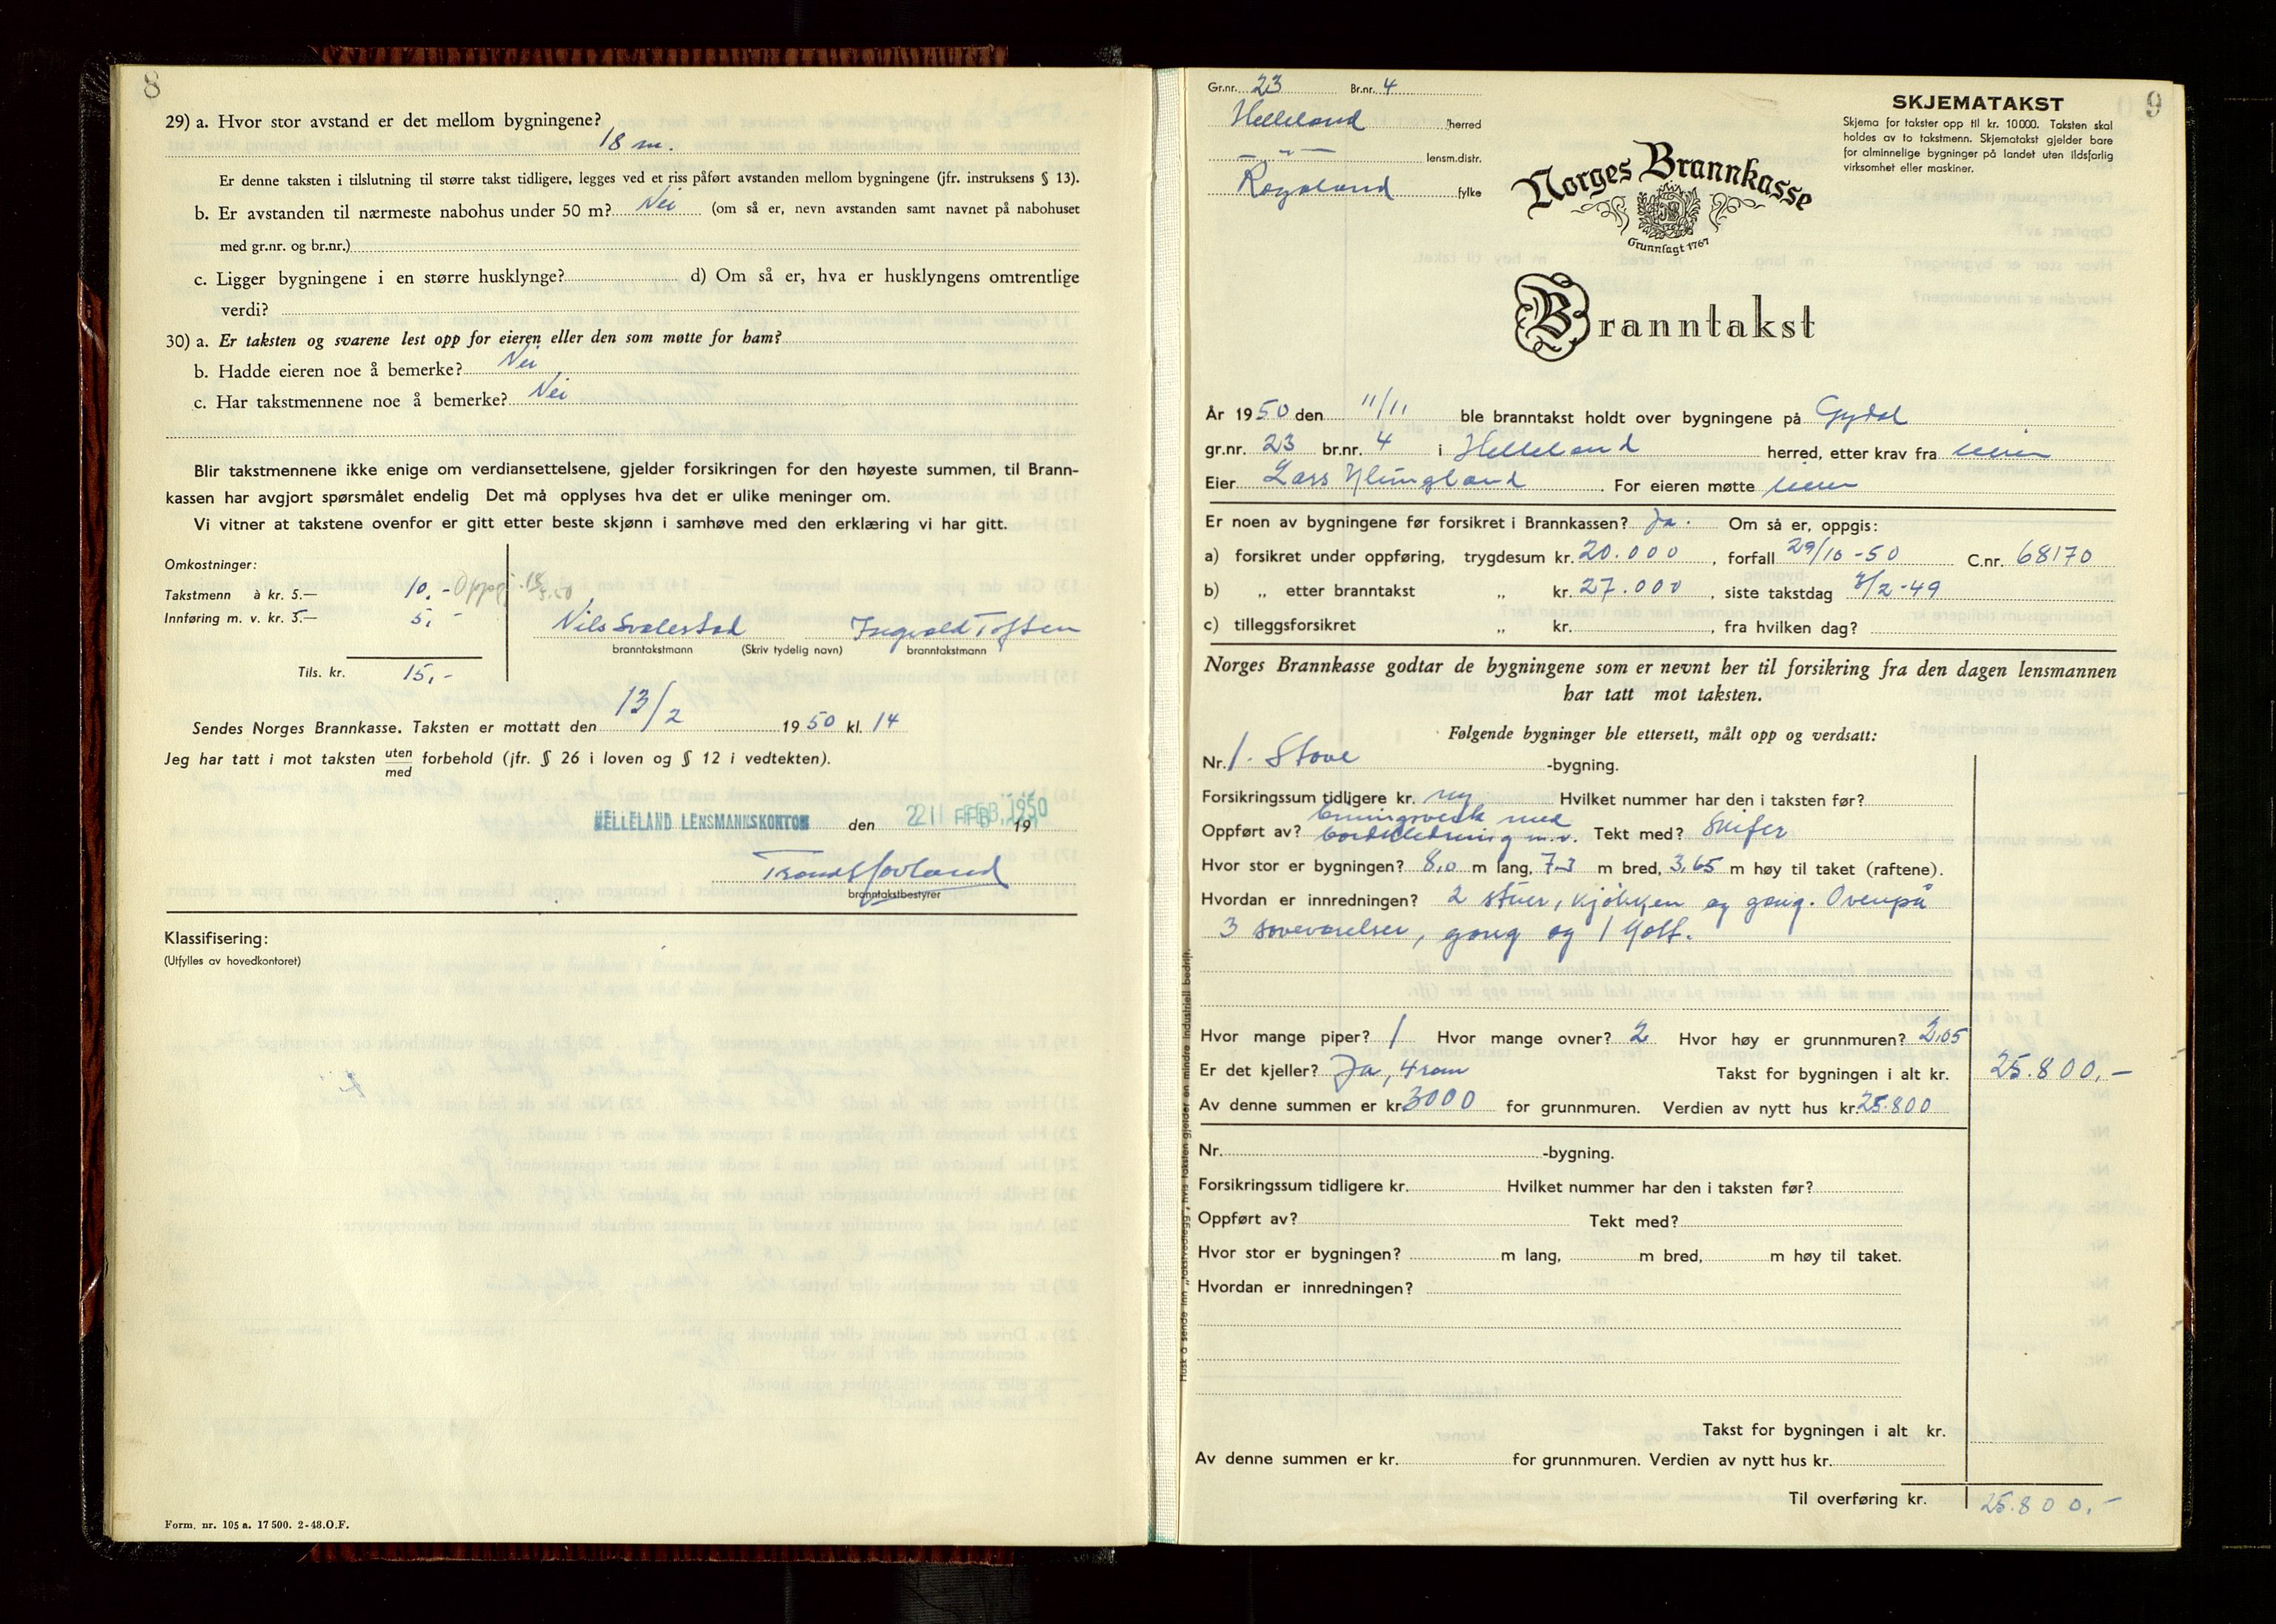 8
29) a. Hvor stor avstand er det mellom bygningene?
18 m.
Er denne taksten i tilslutning til større takst tidligere, legges ved et riss påført avstanden mellom bygningene (jfr. instruksens § 13).
b. Er avstanden til nærmeste nabohus under 50 m? Nei (om så er, nevn avstanden samt navnet på nabohuset
med gr.nr. og br.nr.)
c. Ligger bygningene i en større husklynge? d) Om så er, hva er husklyngens omtrentlige
verdi?
30) a. Er taksten og svarene lest opp for eieren eller den som møtte for ham?
b. Hadde eieren noe å bemerke? Nei
c. Har takstmennene noe å bemerke? Nei
Blir takstmennene ikke enige om verdiansettelsene, gjelder forsikringen for den høyeste summen, til Brann-
kassen har avgjort spørsmålet endelig Det må opplyses hva det er ulike meninger om.
Vi vitner at takstene ovenfor er gitt etter beste skjønn i samhøve med den erklæring vi har gitt.
Omkostninger:
Takstmenn à kr. 5.— 10,-
Innføring m. v. kr. 5.— 5,-
Tils. kr. 15,-
Nils Svalestad Ingvald Toften
branntakstmann (Skriv tydelig navn) branntakstmann
Sendes Norges Brannkasse. Taksten er mottatt den 13/2 1950 kl. 14
Jeg har tatt i mot taksten uten/med forbehold (jfr. § 26 i loven og § 12 i vedtekten).
HELLELAND LENSMANNSKONTOR den FEB. 1950 19
Trond Hovland
branntakstbestyrer
Klassifisering:
(Utfylles av hovedkontoret)
Form. nr. 105 a. 17 500. 2-48.O.F.
9
Gr.nr. 23 Br.nr. 4
Helleland herred
— " — lensm.distr.
Rogaland fylke
SKJEMATAKST
Skjema for takster opp til kr. 10000. Taksten skal
holdes av to takstmenn. Skjematakst gjelder bare
for alminnelige bygninger på landet uten ildsfarlig
virksomhet eller maskiner.
Norges Brannkasse
Grunnlagt 1767
Branntakst
År 1950 den 11/11 ble branntakst holdt over bygningene på Gydal
gr.nr. 23 br.nr. 4 i Helleland herred, etter krav fra eieren
Eier Lars For eieren møtte
Er noen av bygningene før forsikret i Brannkassen? Ja. Om så er, oppgis:
a) forsikret under oppføring, trygdesum kr. 20.000, forfall 29/10-50 C.nr. 68170
b) „ etter branntakst „ kr. 27.000, siste takstdag 3/2-49
c) tilleggsforsikret „ kr. , fra hvilken dag?
Norges Brannkasse godtar de bygningene som er nevnt her til forsikring fra den dagen lensmannen
har tatt mot taksten.
Følgende bygninger ble ettersett, målt opp og verdsatt:
Nr. 1. Stove -bygning.
Forsikringssum tidligere kr. ny Hvilket nummer har den i taksten før?
Oppført av? bindingsverk med
bordkledning m.v. Tekt med? Skifer
Hvor stor er bygningen? 8,0 m lang, 7,3 m bred, 3,65 m høy til taket (raftene).
Hvordan er innredningen? 2 stuer, kjøkken og gang. Ovenpå
3 soveværelser, gang og 1 kott.
Hvor mange piper? 1 Hvor mange ovner? 2 Hvor høy er grunnmuren? 2,05
Er det kjeller? Ja, 4 rom Takst for bygningen i alt kr. 25.800,-
Av denne summen er kr. 3000 for grunnmuren. Verdien av nytt hus kr. 25.800
Nr. -bygning.
Forsikringssum tidligere kr. Hvilket nummer har den i taksten før?
Oppført av? Tekt med?
Hvor stor er bygningen? m lang, m bred, m høy til taket.
Hvordan er innredningen?
Takst for bygningen i alt kr.
Av denne summen er kr. for grunnmuren. Verdien av nytt hus kr.
Til overføring kr. 25.800,-
Husk å sende inn „takstvedlegg", hvis taksten gjelder en mindre industriell bedrift.